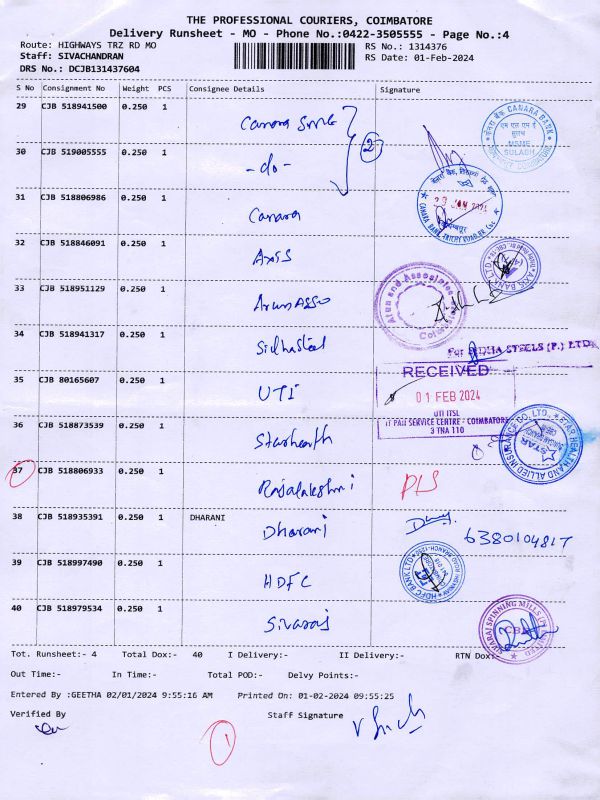 THE PROFESSIONAL COURIERS, COIMBATORE
Delivery Runsheet - MO - Phone No.:0422-3505555 - Page No.:4
Route: HIGHWAYS TRZ RD MO RS No.: 1314376
Staff: SIVACHANDRAN RS Date: 01-Feb-2024
DRS No.: DCJB131437604
S No Consignment No Weight PCS Consignee Details Signature
29 CJB 518941500 0.250 1 Canara
2
CANARA BANK
MSME SULABH
30 CJB 519005555 0.250 1 -do-
31 CJB 518806986 0.250 1 Canara
CANARA BANK
32 CJB 518846091 0.250 1 Axis
AXIS BANK LTD
33 CJB 518951129 0.250 1 Arun Asso
Arun and Associates
34 CJB 518941317 0.250 1 Sidhasteel
For SIDHA STEELS (P.) LTD
35 CJB 80165607 0.250 1 UTI
RECEIVED
01 FEB 2024
UTI ITSL
IT PAN SERVICE CENTRE - COIMBATORE
3 TNA 110
36 CJB 518873539 0.250 1 Starhealth
STAR HEALTH AND ALLIED INSURANCE CO. LTD.,
STAR
37 CJB 518806933 0.250 1 Rajalakshmi
38 CJB 518935391 0.250 1 DHARANI Dharani
6380104817
39 CJB 518997490 0.250 1 HDFC
HDFC BANK LTD
40 CJB 518979534 0.250 1 Sivaraj
SIVARAJ SPINNING MILLS
CBE
Tot. Runsheet:- 4 Total Dox:- 40 I Delivery:- II Delivery:- RTN Dox:-
Out Time:- In Time:- Total POD:- Delvy Points:-
Entered By :GEETHA 02/01/2024 9:55:16 AM Printed On: 01-02-2024 09:55:25
Verified By Staff Signature
1